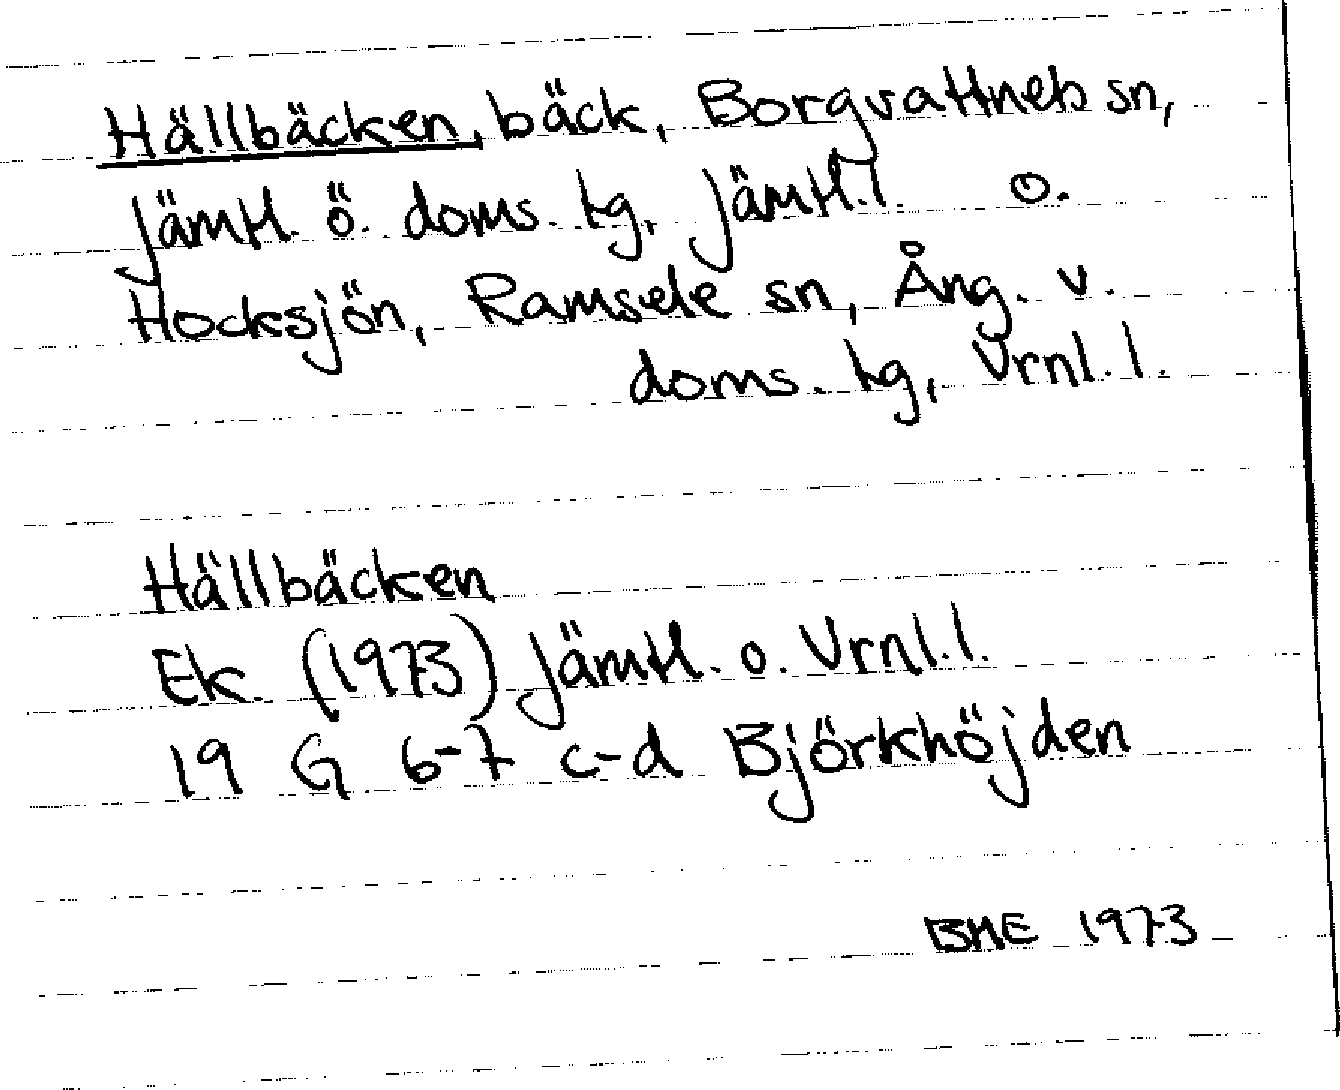 Hällbäcken, bäck, Borgvattnets sn,
Jämtl. ö. doms. tg, Jämtl. l. o.
Hocksjön, Ramsele sn, Ång. v.
doms. tg, Vrnl. l.
Hällbäcken
Ek. (1973) Jämtl. o. Vrnl. l.
19 G 6-7 c-d Björkhöjden
BME 1973